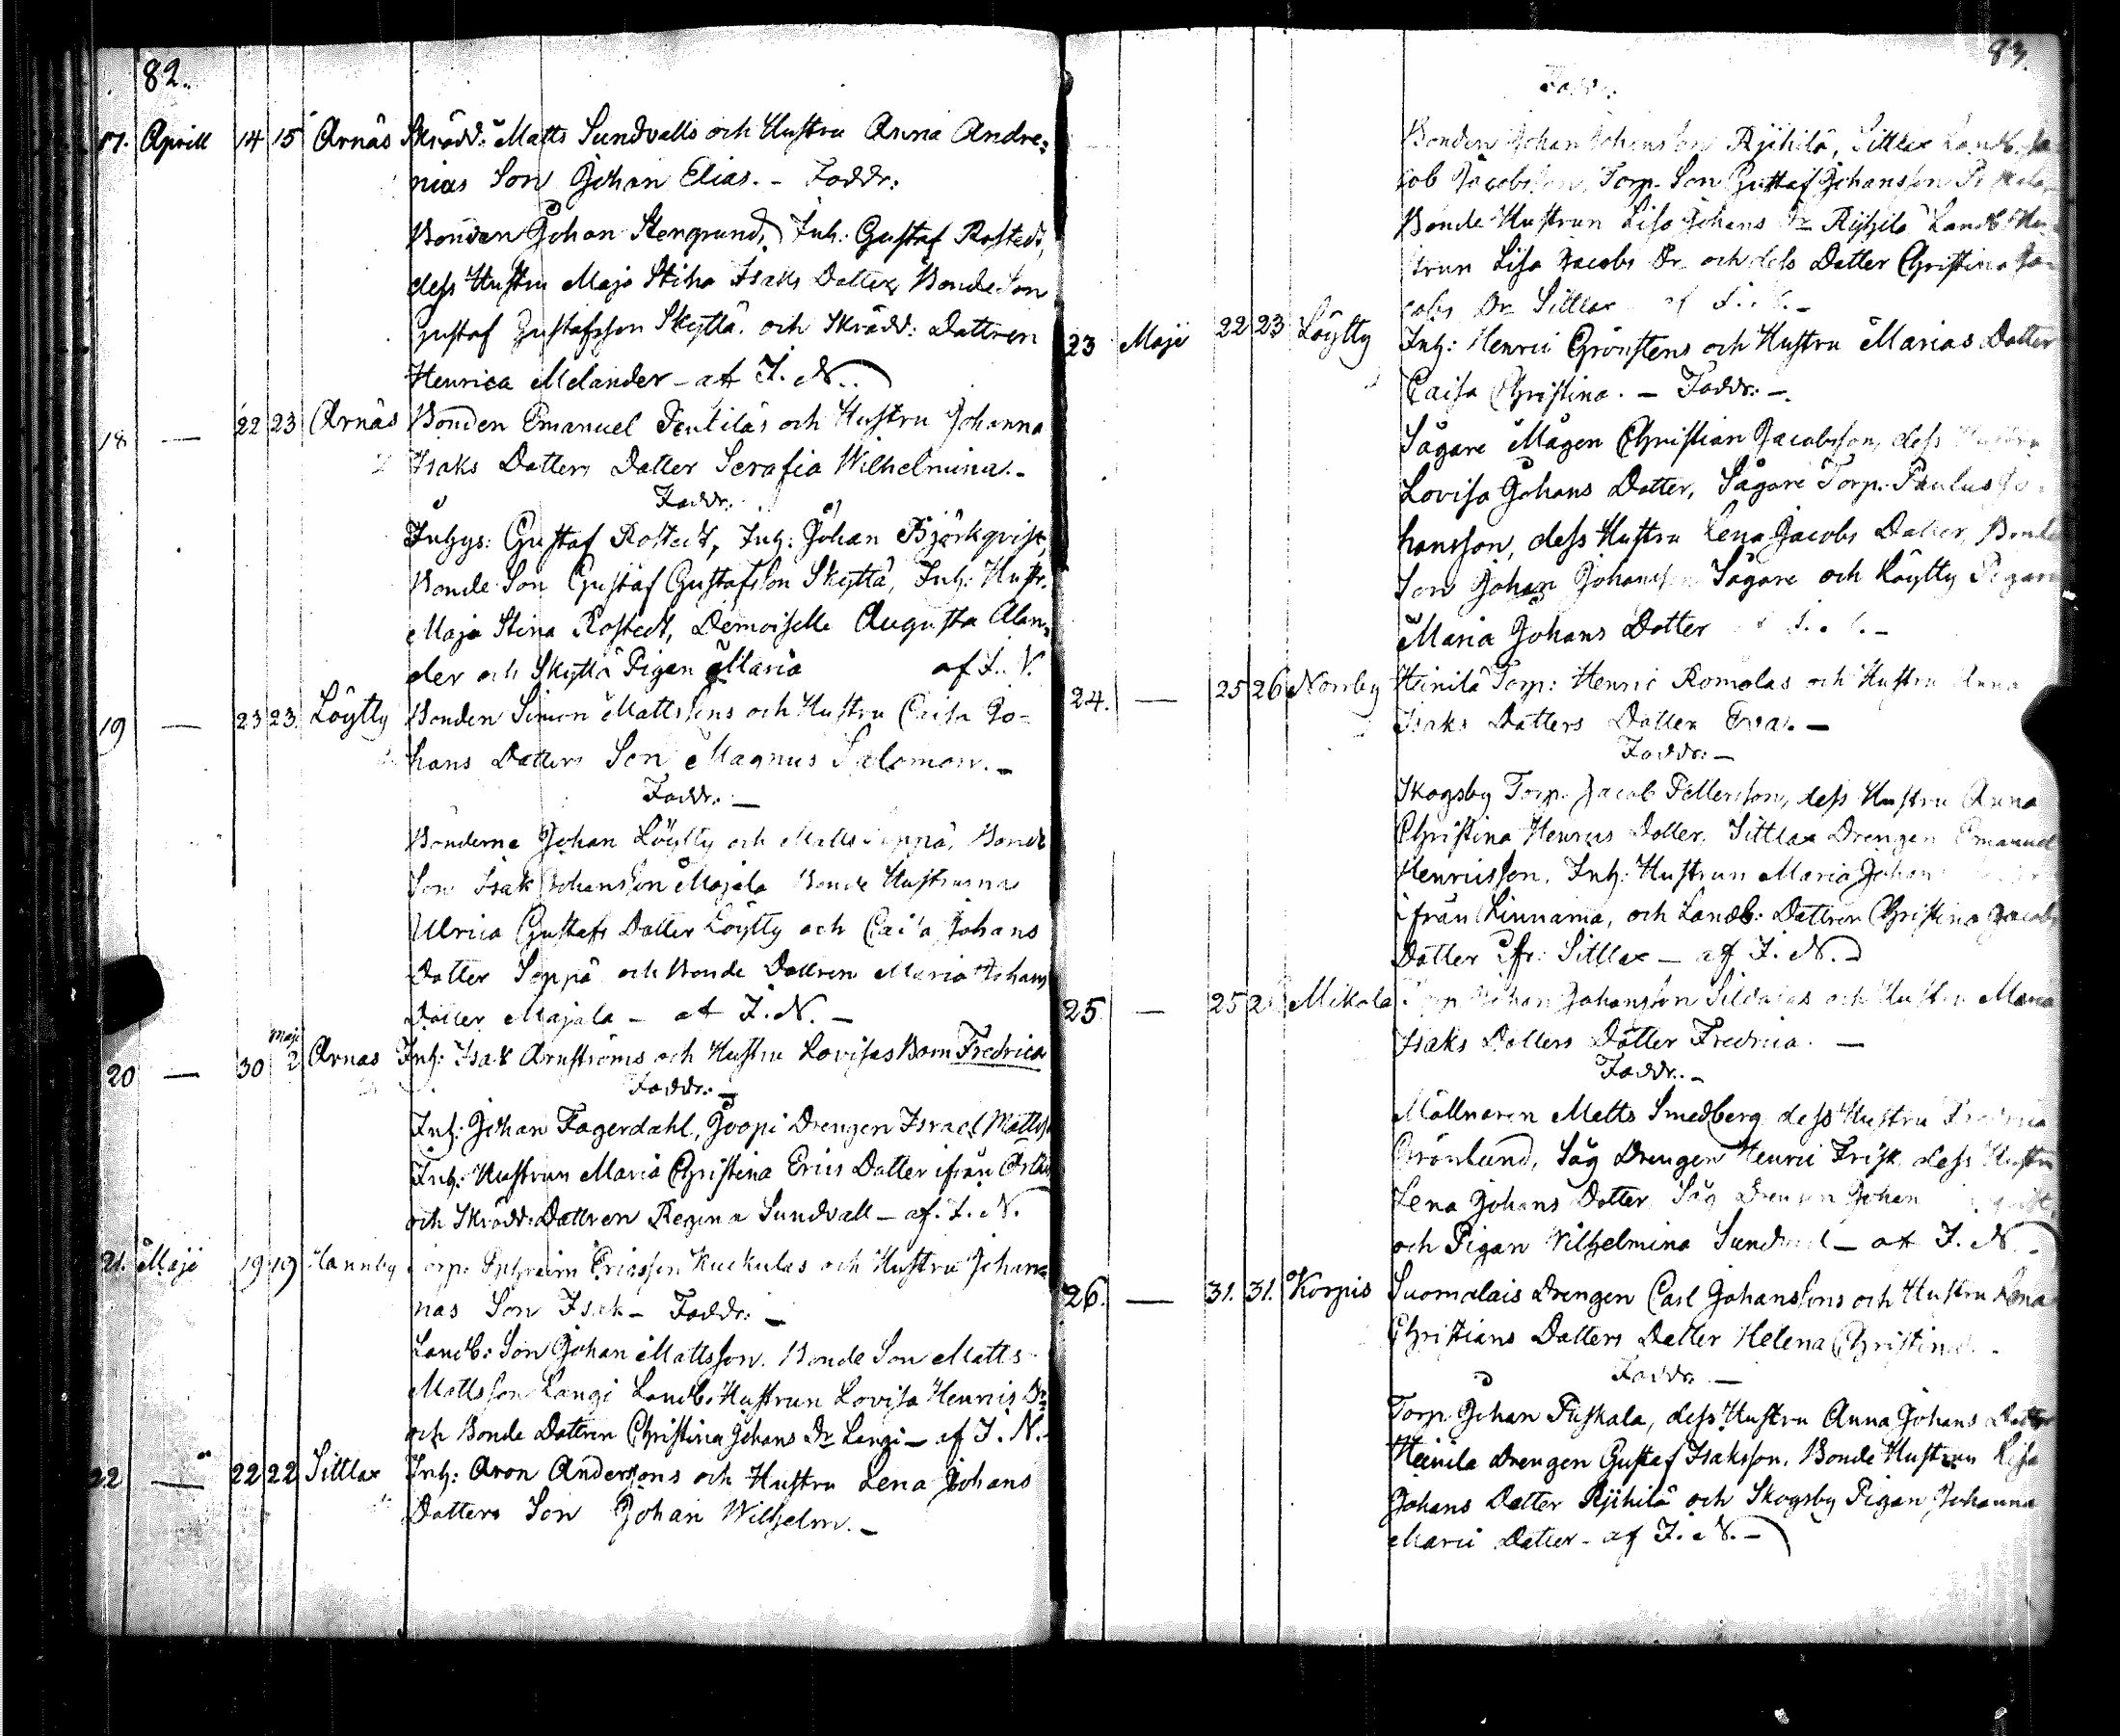 82.
17. Aprill 14 15 Arnäs Skrädd: Matts Sundvalls och Hustru Anna Andre:
nias Son Johan Elias. - Faddr:
Bonden Johan Stengrund, Inh: Gustaf Rostedt,
dess Hustru Maja Stina Isaks Datter, Bonde Son
Gustaf Gustafsson Skyttä. och Skrädd: Dattren
Henrica Melander - af I. N.
18. — 22 23 Arnäs Bonden Emanuel Pentiläs och Hustru Johanna
Isaks Datters Datter Serafia Wilhelmina. -
Faddr:
Inhys: Gustaf Rostedt, Inh: Johan Björkqvist,
Bonde Son Gustaf Gustafsson Skyttä, Inh: Hustr.
Maja Stina Rostedt, Demoiselle Augusta Alan:
der och Skyttä Pigan Maria af I. N.
19 — 23 23. Löytty Bonden Simon Mattssons och Hustru Caisa Jo-
hans Datters Son Magnus Salomon. -
Faddr: —
Bönderne Johan Löytty och Matts Soppä, Bonde
Son Isak Johansson Majala Bonde Hustrurna
Ulrica Gustafs Datter Löytty och Caisa Johans
Datter Soppä och Bonde Dattren Maria Johans
Datter Majala - af I. N. -
20 — 30 Maji 2 Arnäs Inh: Isak Arnströms och Hustru Lovisas Barn Fredrica
Faddr: -
Inh: Johan Fagerdahl, Joopi Drengen Israel Mattss
Inh: Hustrun Maria Christina Erics Datter ifrån
och Skrädd: Dattren Regina Sundvall - af. I. N.
21. Maji 19 19 Hannby Torp: Ephraim Ericsson Kuckulas och Hustru Johan
nas Son Isak - Faddr: -
Landb: Son Johan Mattsson. Bonde Son Matts
Mattsson Langi Landb. Hustrun Lovisa Henrics Dr
och Bonde Dattren Christina Johans Dr Langi - af I. N.
22 — 22 22 Sittlax Inh: Aron Anderssons och Hustru Lena Johans
Datters Son Johan Wilhelm. -
83.
Faddr:
Bonden Johan Johansson Rjihilä, Sittlax Landb. Ja
cob Jacobsson, Torp. Son Gustaf Johansson
Bonde Hustrun Lisa Johans Dr Rjihilä Landb Hu
strun Lisa Jacobs Dr och dess Datter Christina Ja-
cobs Dr Sittlax af I. N. -
23 Maji 22 23 Löytty Inh: Henric Grönstens och Hustru Marias Datter
Caisa Christina. - Faddr: -
Sågare Mågen Christian Jacobsson, dess Hustru
Lovisa Johans Datter, Sågare Torp. Paulus Jo
hansson, dess Hustru Lena Jacobs Datter, Bonde
Son Johan Johansson Sågare och Löytty Pigan
Maria Johans Datter
24. — 25 26 Norrby Heinilä Torp: Henric Romolas och Hustru Anna
Isaks Datters Datter Eva. -
Faddr: -
Skogsby Torp. Jacob Pettersson, dess Hustru Anna
Christina Henrics Datter, Sittlax Drengen Emanuel
Henricsson. Inh: Hustrun Maria Johans
ifrån Linnama, och Landb: Dattren Christina Jacobs
Datter ifr: Sittlax - af I. N.
25 — 25 2 Mikola Torp Johan Johansson Sildalas och Hustru Maria
Isaks Datters Datter Fredrica. -
Faddr. -
Möllnaren Matts Smedberg dess Hustru Fredrica
Grönlund, Såg Drengen Henric Frisk dess Hustru
Lena Johans Datter, Såg Drengen Johan
och Pigan Wilhelmina Sundvall - af I. N. -
26. — 31. 31. Korpis Suomalais Drengen Carl Johanssons och Hustru Lena
Christians Datters Datter Helena Christina. -
Faddr. -
Torp Johan Puskala, dess Hustru Anna Johans Datter
Heinilä Drengen Gustaf Isaksson. Bonde Hustrun Lisa
Johans Datter Rjihilä och Skogsby Pigan Johanna
Marii Datter - af I. N. -